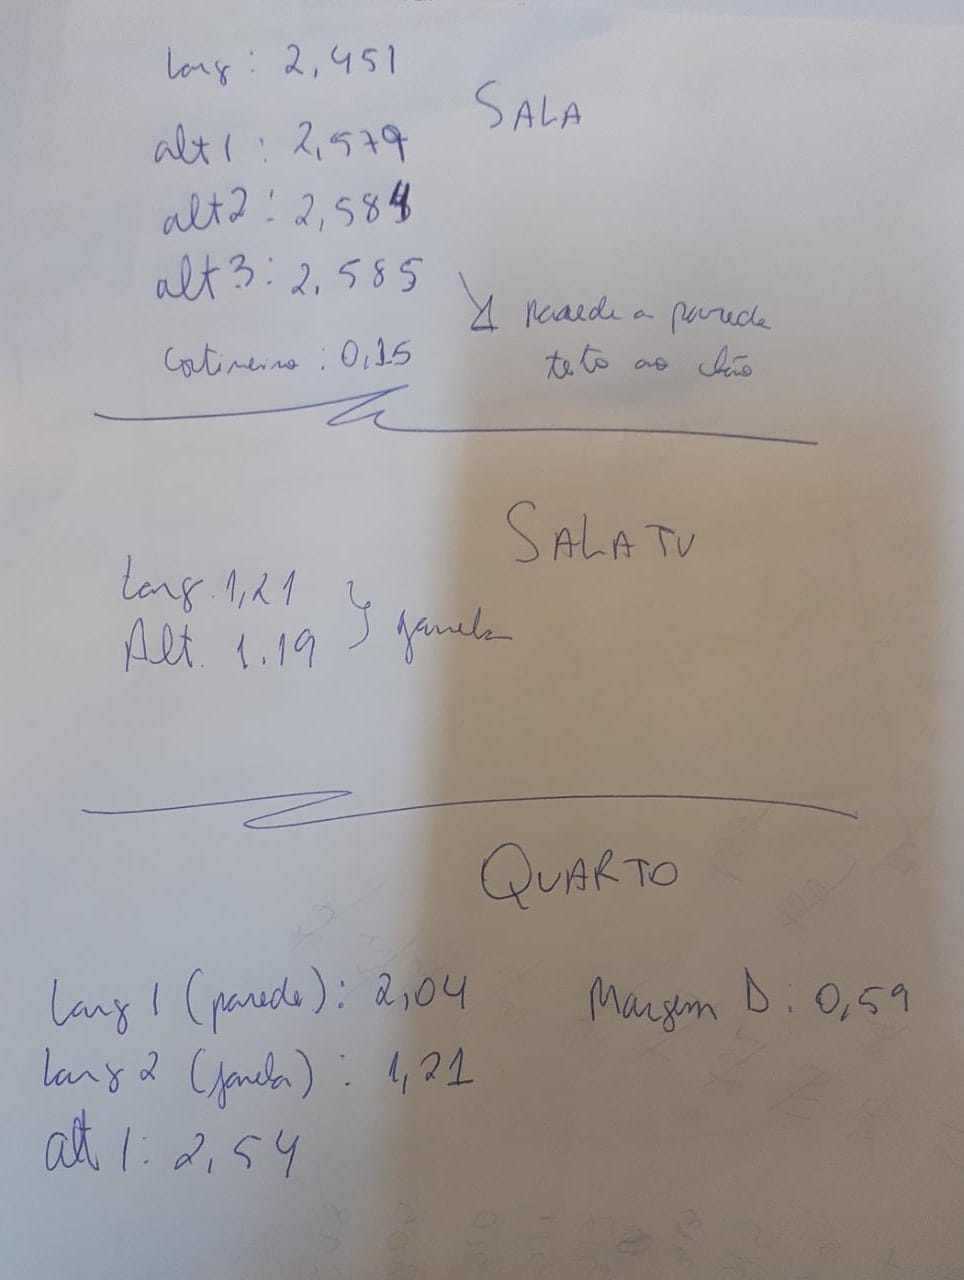 larg: 2,451
SALA
alt 1: 2,579
alt2: 2,584
alt 3: 2,585
parede a parede
cortineiro: 0,15
teto ao chão
SALA TV
Larg. 1,21
janela
Alt. 1.19
QUARTO
Larg 1 (parede): 2,04 Margem D: 0,59
larg 2 (janela): 1,21
alt 1: 2,54